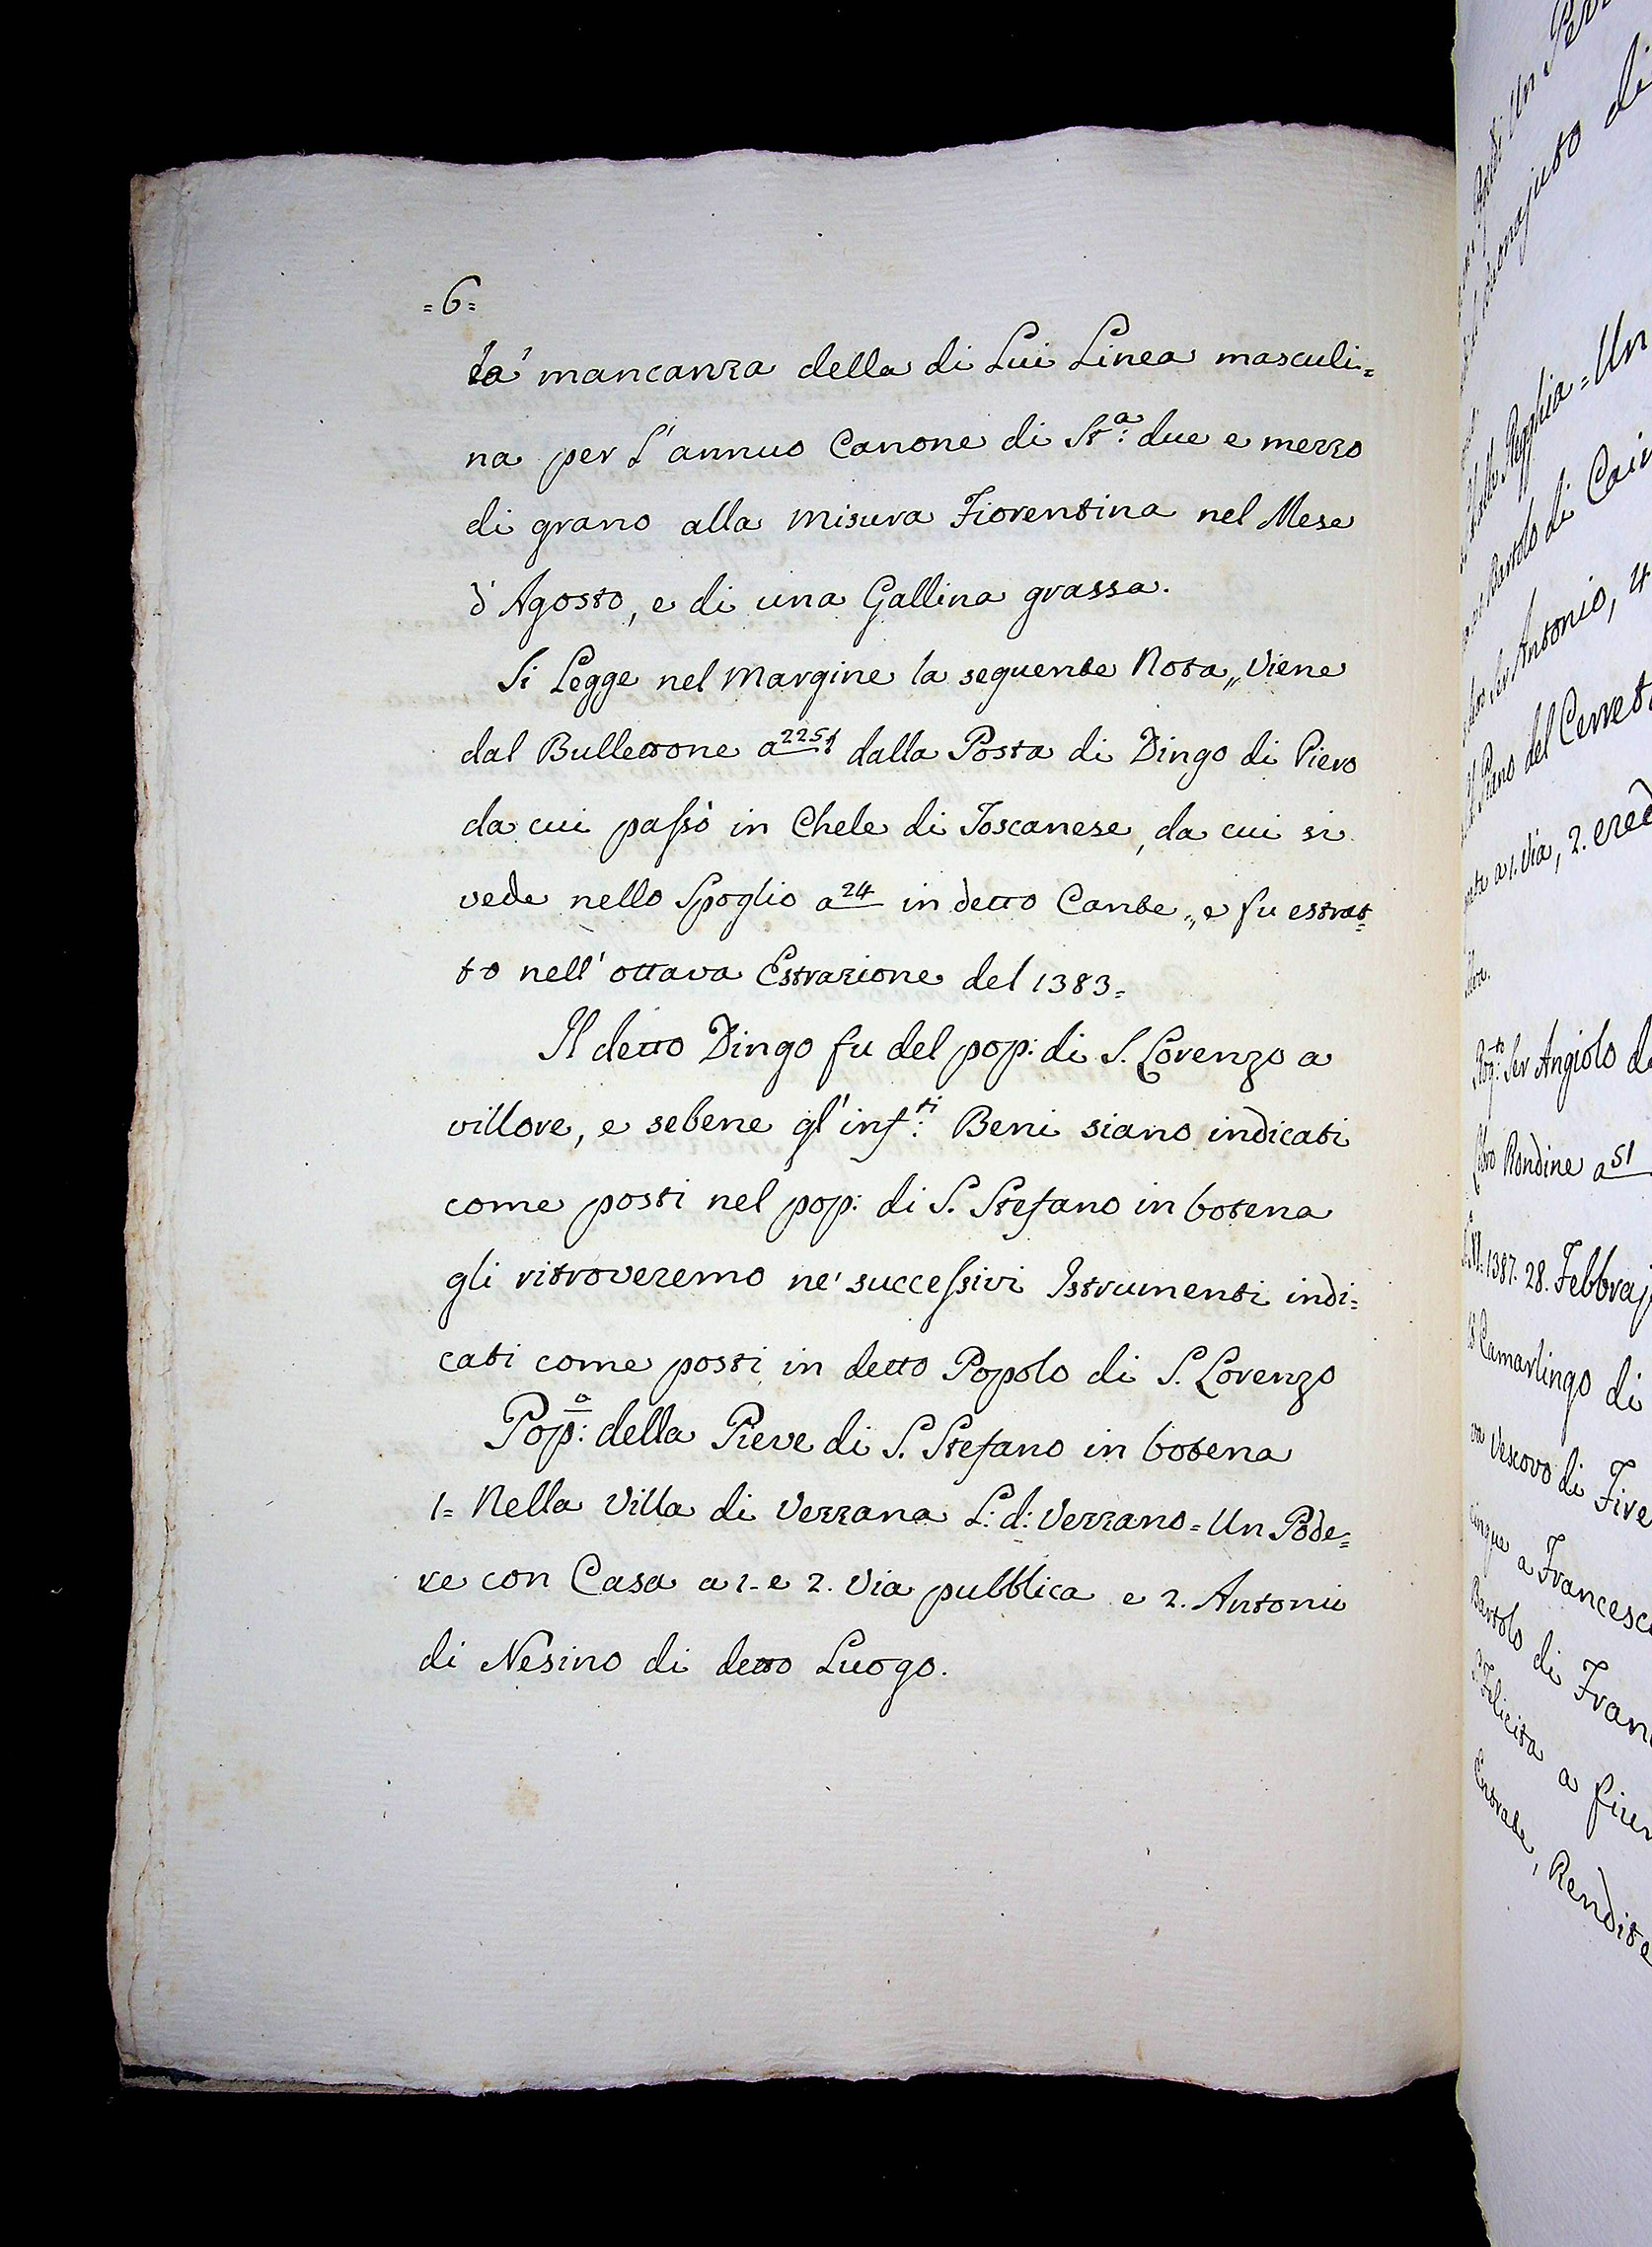 =6=
la' mancanza della di Lui Linea masculi=
na per l'annuo Canone di St.ª: due e mezzo
di grano alla misura Fiorentina nel Mese
d'Agosto, e di una Gallina grassa.
Si Legge nel Margine la seguente Nota„ Viene
dal Bullettone a 225 dalla Posta di Dingo di Piero
da cui passò in Chele di Toscanese, da cui si
vede nello Spoglio a 24 in detto Cante„ e fu estrat=
to nell'ottava Estrazione del 1383=
Il detto Dingo fu del pop: di S. Lorenzo a
villore, e sebene gl'inf.ti: Beni siano indicati
come posti nel pop: di S. Stefano in botena
gli ritroveremo ne' successivi Istrumenti indi=
cati come posti in detto Popolo di S. Lorenzo
Pop:º della Pieve di S. Stefano in botena
1= Nella Villa di Verrana L: d: Verrano= Un Pode=
re con Casa a 1. e 2. Via pubblica e 2. Antonii
di Nesino di detto Luogo.
Buonajuto di
Un
Bartolo di
Ser Antonio, 4
Piano del Cerreto
a 1. Via, 2.
Rog.to: Ser Angiolo d
Rondine a 51
1387. 28. Febbraj
Camarlingo di
Vescovo di Fire
a Francesc
Bartolo di Fran
Felicita a fium
Entrate, Rendite